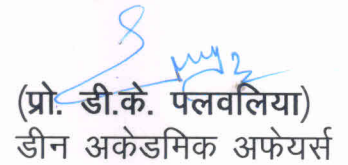 (प्रो. डी.के. पलवलिया)
डीन अकेडमिक अफेयर्स